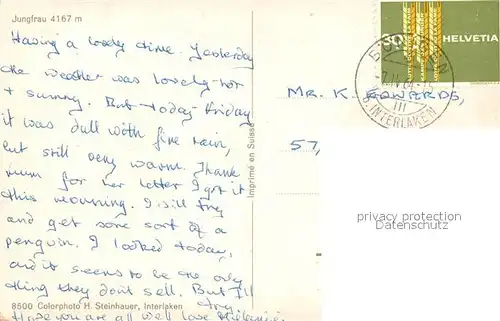 Jungfrau 4167 m
Having a lovely time. Yesterday
the weather was lovely-hot
+ sunny. But-today-Friday
it was dull with fine rain,
but still very warm. Thank
mum for her letter I got it
this morning. I will try
and get some sort of a
penguin. I looked today,
and it seems to be the only
thing they don't sell. But I'll
try.
Hope you are all well love
8500 Colorphoto H. Steinhauer, Interlaken
Imprimé en Suisse
30 HELVETIA
INTERLAKEN
III
MR. K.
57,
privacy protection
Datenschutz